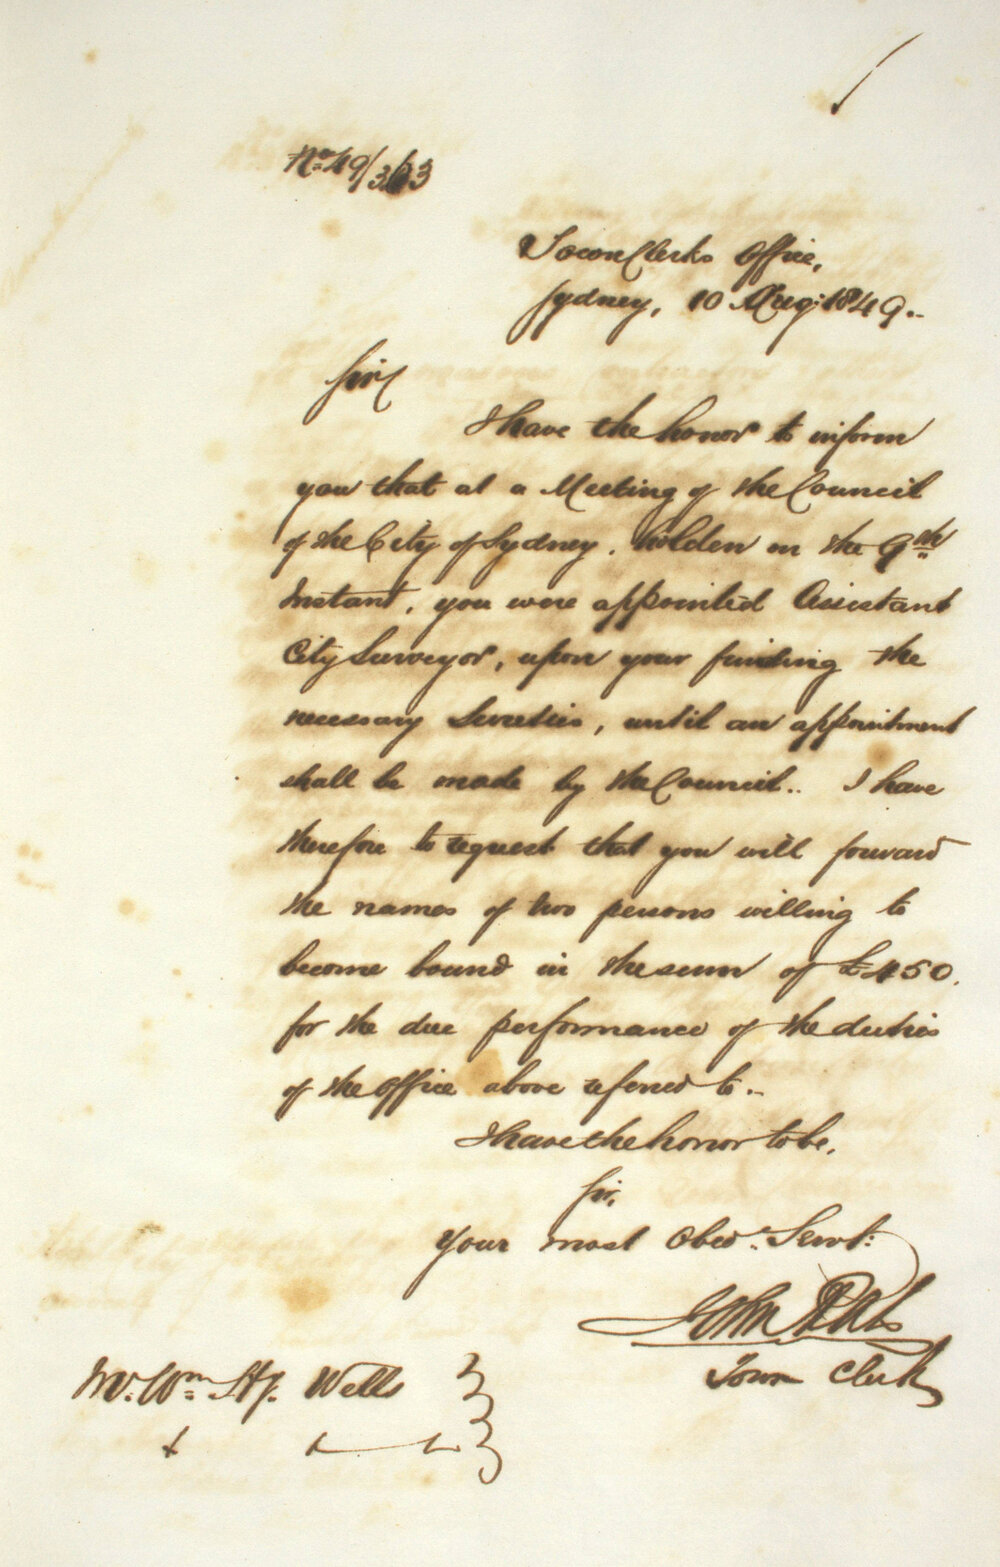 No. 49/363
Town Clerks Office,
Sydney, 10 Aug: 1849..
Sir
I have the honor to inform
you that at a Meeting of the Council
of the City of Sydney, holden on the 9th
Instant, you were appointed Assistant
City Surveyor, upon your finding the
necessary Sureties, until an appointment
shall be made by the Council.. I have
therefore to request that you will forward
the names of two persons willing to
become bound in the sum of £450.
for the due performance of the duties
of the Office above referred to..
I have the honor to be,
Sir,
Your most Obed. Servt:
John
Town Clerk
Mr. Wm. Hy. Wells